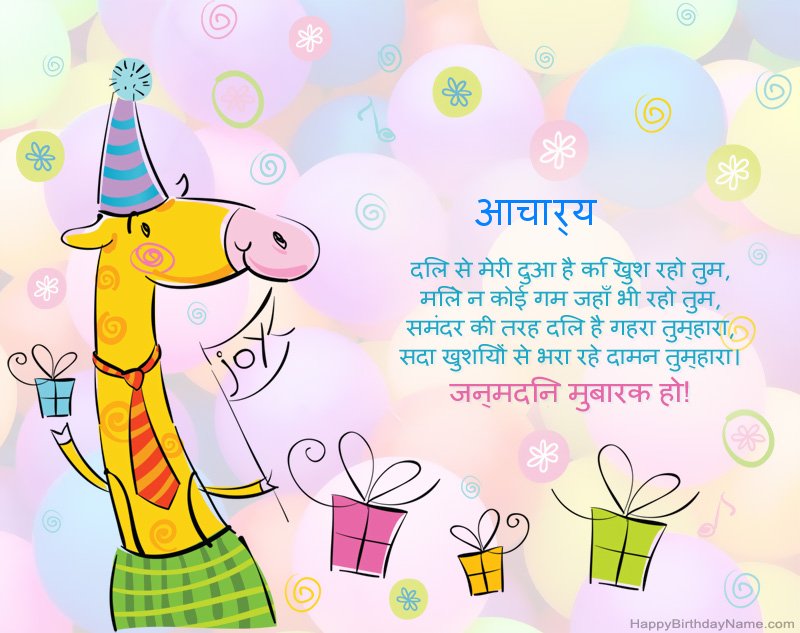 आचार्‌य
दलि से मेरी दुआ है कि खुश रहो तुम,
मलिे न कोई गम जहाँ भी रहो तुम,
समंदर की तरह दलि है गहरा तुम्‌हारा,
सदा खुशयिों से भरा रहे दामन तुम्‌हारा।
जन्‌मदनि मुबारक हो!
joy
HappyBirthdayName.com